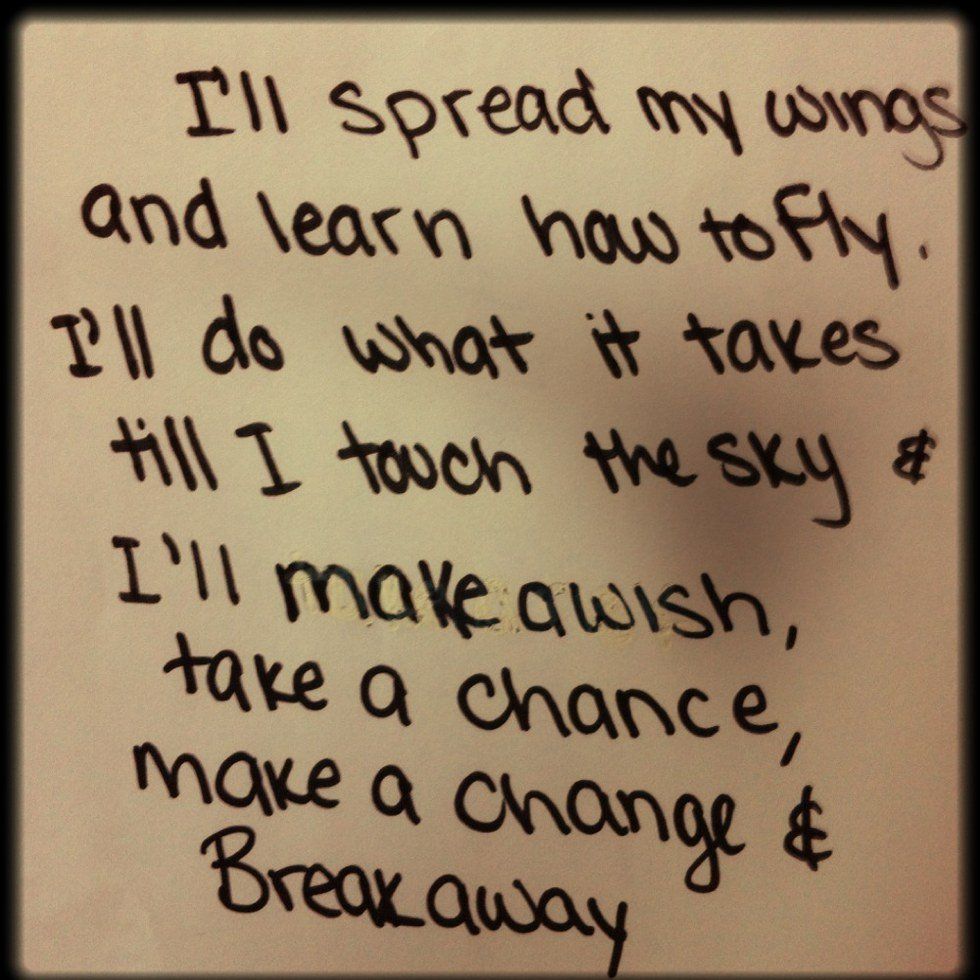 I'll spread my wings
and learn how to fly.
I'll do what it takes
till I touch the sky &
I'll make a wish,
take a chance,
make a change &
Breakaway